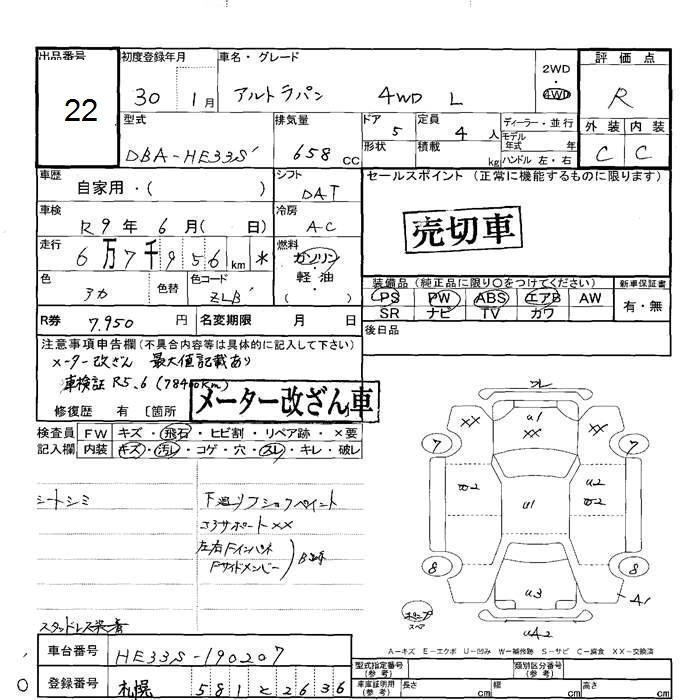 出品番号 初度登録年月 車名・グレード 2WD 評価点
22 30 1月 アルトラパン 4WD L 4WD R
型式 排気量 ドア 定員 ディーラー・並行 外装 内装
DBA-HE33S 658 CC 5 4人 モデル年式 年 C C
形状 積載 kg ハンドル 左・右
車歴 シフト セールスポイント (正常に機能するものに限ります)
自家用・( ) DAT
車検 冷房
R9年 6月( 日) AC
売切車
走行 燃料
6万7千956km * ガソリン・軽油・( )
色 色替 色コード 装備品 (純正品に限り○をつけてください) 新車保証書
アカ ZLB PS PW ABS エアB AW 有・無
SR ナビ TV カワ
R券 7,950 円 名変期限 月 日 後日品
注意事項申告欄(不具合内容等は具体的に記入して下さい)
メーター改ざん 最大値記載あり
車検証 R5.6 (78400km)
修復歴 有 〔箇所 メーター改ざん車
検査員 FW キズ・飛石・ヒビ割・リペア跡・×要
記入欄 内装 キズ・汚レ・コゲ・穴・スレ・キレ・破レ
シートシミ
エアサポートXX
XX U1 XX XX
7 7
U2
U1
8 8
U3
A1
スペア
UA2
スタッドレス装着
A-キズ E-エクボ U-凹み W-補修跡 S-サビ C-腐食 XX-交換済
車台番号 HE33S-190207 型式指定番号(参考) 類別区分番号(参考)
登録番号 札幌 581 と 2636 車庫証明用(参考) 長さ cm 幅 cm 高さ cm